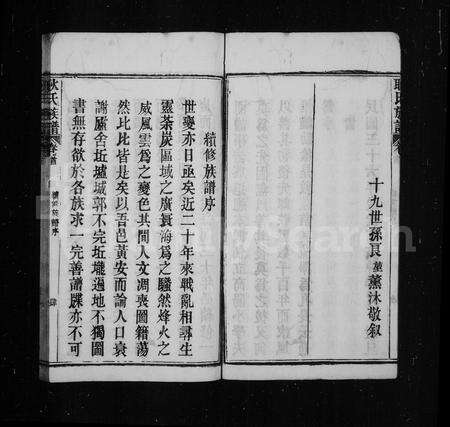 十九世孫良薰沐敬叙
續修族譜序
世變亦日亟矣近二十年來戰亂相尋生
靈荼炭區域之廣寰海為之騷然烽火之
威風雲為之變色其間人文凋喪圖籍蕩
然比比皆是矣以吾邑黃安而論人口衰
謝廬舍坵墟城郭不完坵壠過地不獨圖
書無存欲於各族求一完善譜牒亦不可
耿氏族譜
卷首
續修族譜序